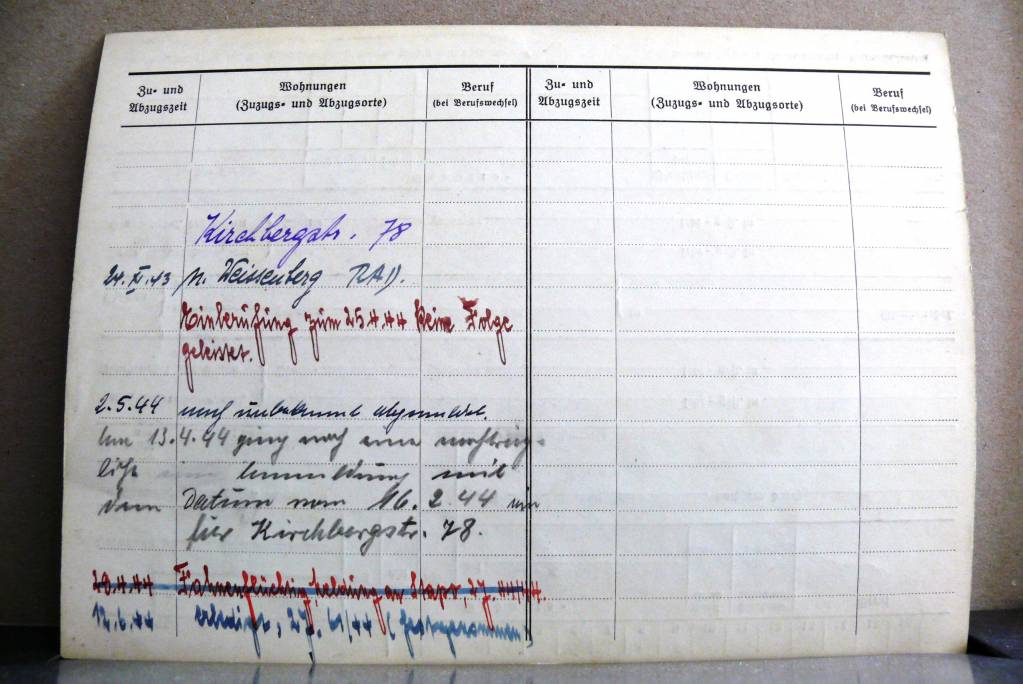 Zu- und Abzugszeit
Wohnungen (Zuzugs- und Abzugsorte)
Beruf (bei Berufswechsel)
Zu- und Abzugszeit
Wohnungen (Zuzugs- und Abzugsorte)
Beruf (bei Berufswechsel)
Kirchbergstr. 78
24.XI.43 n. Weissenberg RAD.
Einberufung zum 25.4.44 keine Folge
geleistet.
2.5.44 nach unbekannt abgemeldet.
Am 13.4.44 ging noch eine nachträg-
liche Anmeldung mit
dem Datum vom 16.2.44 ein
für Kirchbergstr. 78.
20.4.44 Fahnenflüchtig, Meldung an Stapo, 27.
12.6.44 erledigt,